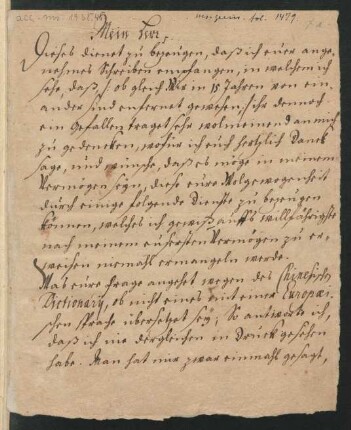 acc. ms. 
Mein Herr
Dieses dienet zu bezeugen, daß ich euer ange-
nehmes Schreiben empfangen, in welchem ich
sehe, daß, ob gleich Wir in 15 Jahren von ein-
ander sind entfernet gewesen, Ihr dennoch
ein Gefallen traget sehr wolmeinend an mich
zu gedencken, wofür ich euch hertzlich Danck
sage, und wünsche, daß es möge in meinem
Vermögen seyn, diese eure Wolgewogenheit
durch einige folgende Dienste zu bezeugen
können, welches ich gewiß auffs willfährigste
nach meinem eusersten Vermögen zu er-
weisen niemahls ermangeln werde.
Was eure frage angehet wegen des Chinesischen
Dictionary, ob nicht eines mit einer Europæi-
schen Sprache übersetzet sey; So antworte ich,
daß ich nie dergleichen in Druck gesehen
habe. Man hat mir zwar einmahl gesagt,